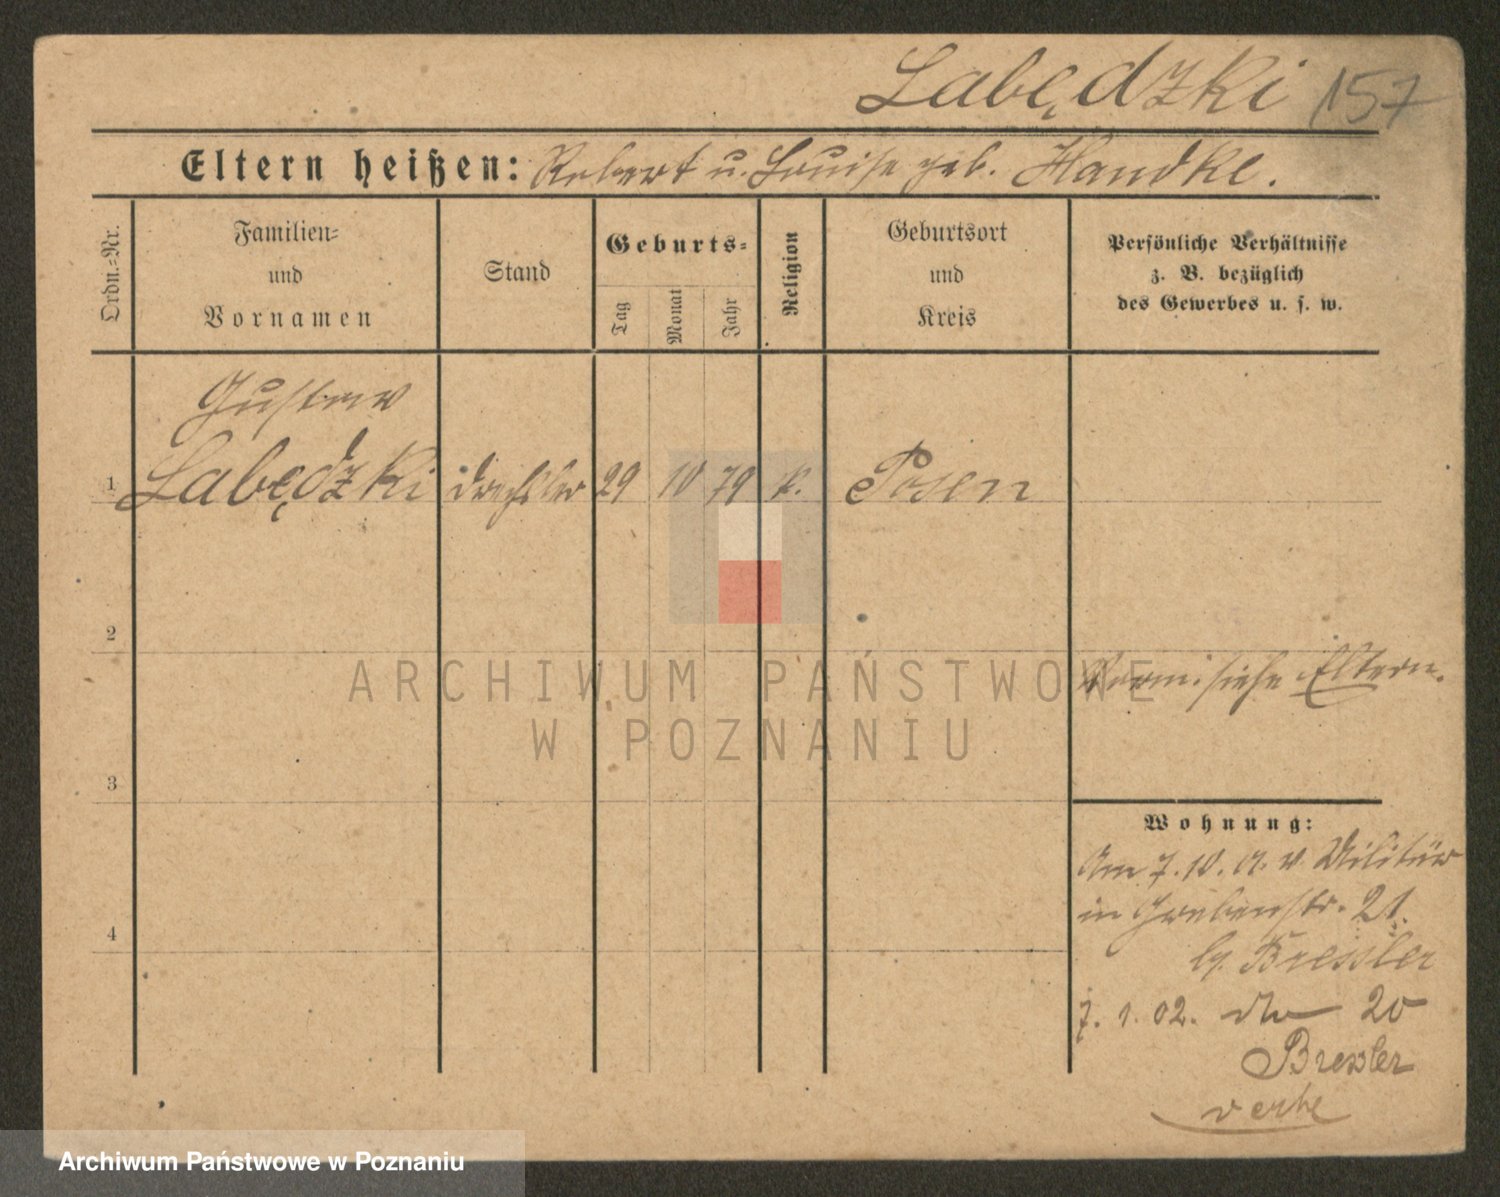 Labędzki 157
Eltern heißen: Robert u. Louise geb. Handke.
Ordn.-Nr.
Familien-
und
Vornamen
Stand
Geburts-
Tag
Monat
Jahr
Religion
Geburtsort
und
Kreis
Persönliche Verhältnisse
z. B. bezüglich
des Gewerbes u. s. w.
Gustav
1 Labędzki Drechsler 29 10 79 k. Posen
2
siehe Eltern.
3
Wohnung:
Am 7. 10. v. Militär
in Grabenstr. 21.
Bressler
4
7. 1. 02. dto 20
Bressler
ARCHIWUM PAŃSTWOWE
W POZNANIU
Archiwum Państwowe w Poznaniu